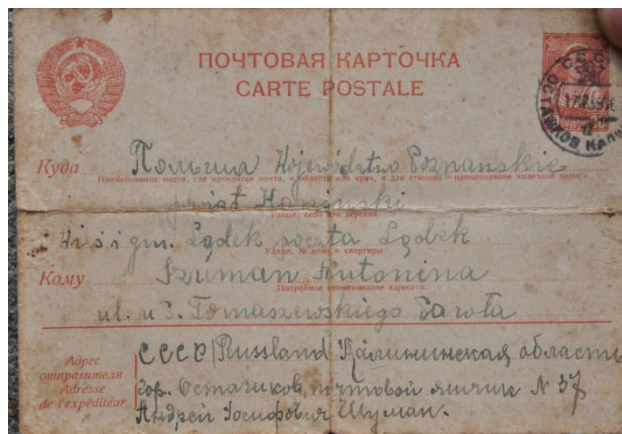 ПОЧТОВАЯ КАРТОЧКА
CARTE POSTALE
Куда Польша Województwo Poznańskie
Наименование места, где находится почта, и области или края, а для станции – наименование железной дороги
powiat Koniński
Район, село или деревня
gm. Lądek poczta Lądek
Улица, № дома и квартиры
Кому Szuman Antonina
Подробное наименование адресата
ul. u P. Tomaszewskiego Karola
Адрес отправителя
Adresse de l'expéditeur
СССР/Russland Калининская область
гор. Осташков, почтовой ящик N 37
Андрей Иосифович Шуман.